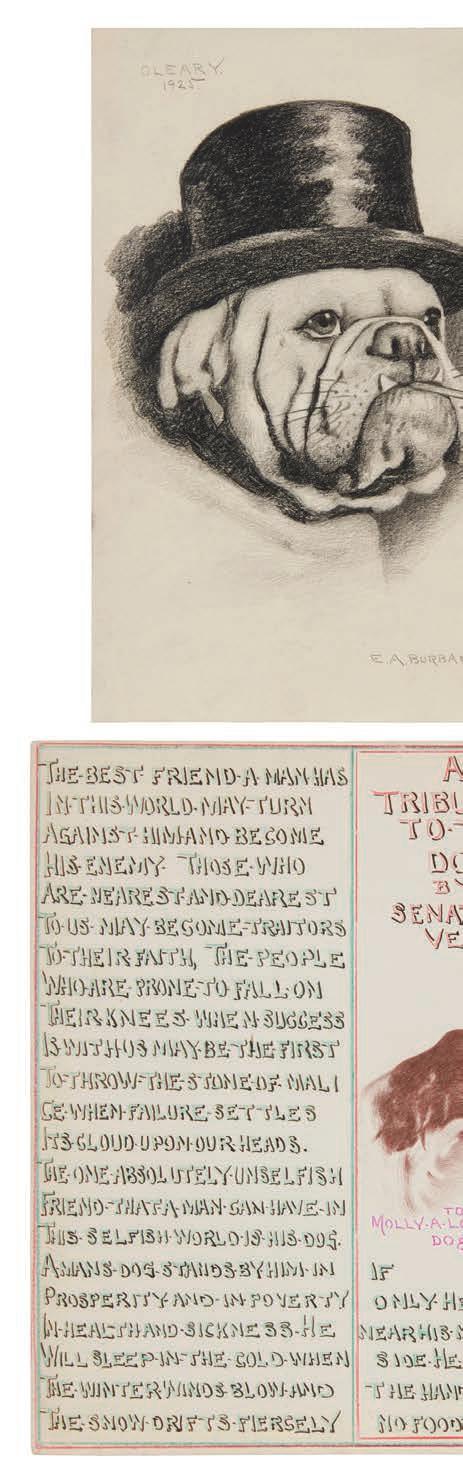 OLEARY.
1925
E.A. BURBA
THE·BEST FRIEND·A·MAN·HAS
IN·THIS·WORLD·MAY·TURN
AGAINST·HIM·AND·BECOME
HIS·ENEMY· THOSE·WHO
ARE·NEAREST·AND·DEAREST
TO·US·MAY·BECOME·TRAITORS
TO·THEIR FAITH, THE·PEOPLE
WHO·ARE·PRONE·TO FALL·ON
THEIR KNEES·WHEN SUCCESS
IS·WITH·US MAY·BE·THE FIRST
TO·THROW·THE·STONE·OF·MALI
CE·WHEN·FAILURE·SETTLES
ITS·CLOUD·UPON·OUR HEADS.
THE·ONE·ABSOLUTELY·UNSELFISH
FRIEND·THAT·A·MAN·CAN·HAVE·IN
THIS·SELFISH·WORLD·IS·HIS·DOG.
A·MANS·DOG·STANDS·BY·HIM·IN
PROSPERITY·AND·IN·POVERTY
IN·HEALTH·AND·SICKNESS·HE
WILL SLEEP·IN·THE·COLD·WHEN
THE·WINTER·WINDS·BLOW·AND
THE·SNOW·DRIFTS·FIERCELY
A
TRIBU
TO·T
DO
BY
SENA
VE
TO
MOLLY·A·LO
DOG
IF
ONLY·HE
NEAR·HIS·M
SIDE·HE
THE HAN
NO FOOD